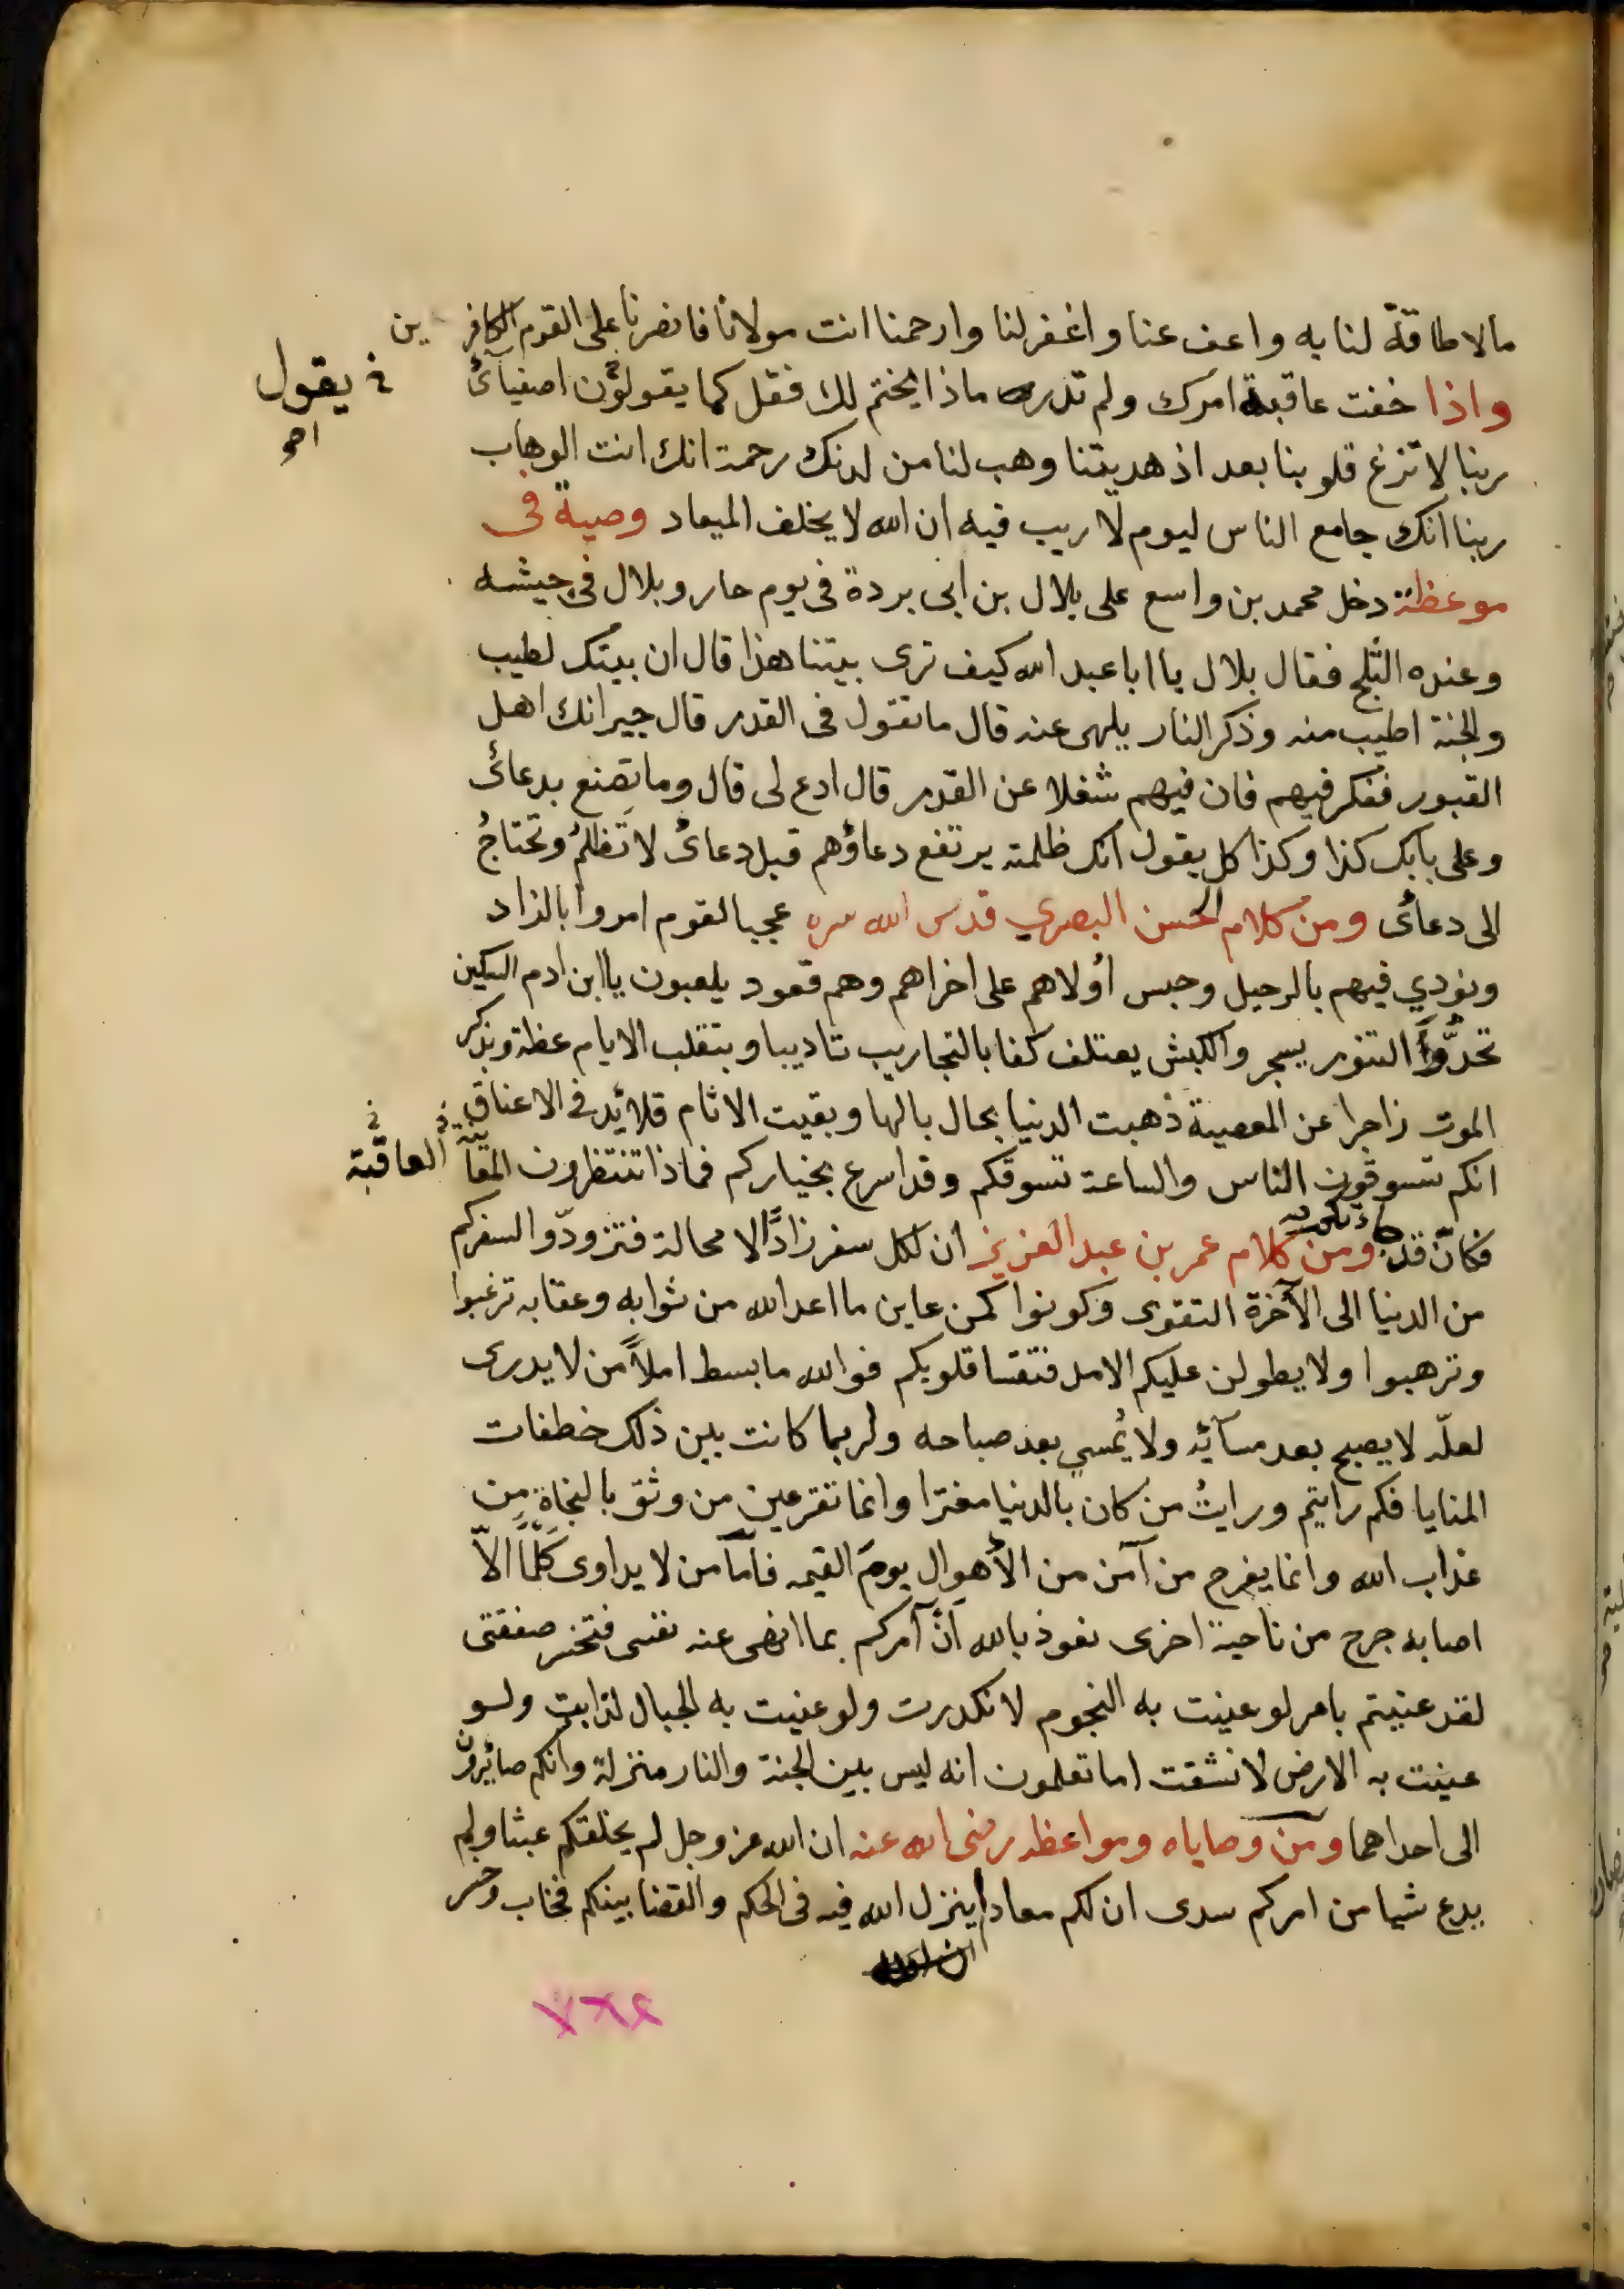 مالا طاقة لنا به واعف عنا واغفر لنا وارحمنا انت مولانا فانصرنا على القوم الكافرين
واذا خفت عاقبة امرك ولم تدر ماذا يختم لك فقل كما يقولون اصفيائ
خ يقول
ربنا لا تزغ قلوبنا بعد اذ هديتنا وهب لنا من لدنك رحمة انك انت الوهاب
ربنا انك جامع الناس ليوم لا ريب فيه ان الله لا يخلف الميعاد وصية فى
موعظة دخل محمد بن واسع على بلال بن ابى بردة فى يوم حار وبلال فى حيشه
وعنده الثلج فقال بلال يا ابا عبد الله كيف ترى بيتنا هذا قال ان بيتك لطيب
والجنة اطيب منه وذكر النار يلهى عنه قال ما تقول فى القدر قال جيرانك اهل
القبور ففكر فيهم فان فيهم شغلا عن القدر قال ادع لى قال وما تصنع بدعائ
وعلى بابك كذا وكذا كل يقول انك ظلمته يرتفع دعاؤهم قبل دعائ لا تظلم وتحتاج
الى دعائ ومن كلام الحسن البصري قدس الله سره عجبا لقوم امروا بالزاد
ونودي فيهم بالرحيل وحبس اولاهم على اخراهم وهم قعود يلعبون يا ابن ادم السكين
تحد والتنور يسجر والكبش يعتلف كفا بالتجاريب تاديبا وبتقلب الايام عظة وبذكر
الموت زاجرا عن المعصية ذهبت الدنيا بحال بالها وبقيت الاثام قلائد فى الاعناق
انكم تسوقون الناس والساعة تسوقكم وقد اسرع بخياركم فماذا تنتظرون المعاينة
خ العاقبة
فكان قد ومن كلام عمر بن عبد العزيز ان لكل سفر زادا لا محالة فتزودوا لسفركم
من الدنيا الى الآخرة التقوى وكونوا كمن عاين ما اعد الله من ثوابه وعقابه ترغبوا
وترهبوا ولا يطولن عليكم الامد فتقسا قلوبكم فوالله ما بسط املا من لا يدرى
لعلّه لا يصبح بعد مسآئه ولا يمسي بعد صباحه ولربما كانت بين ذلك خطفات
المنايا فكم رايتم ورايت من كان بالدنيا مغترا وانما تقر عين من وثق بالنجاة من
عذاب الله وانما يفرح من آمن من الأهوال يوم القيمه فامّا من لا يداوى كلما الّا
اصابه جرح من ناحية اخرى نعوذ بالله ان آمركم بما انهى عنه نفسى فتخسر صفقتى
لقد عنيتم بامر لو عنيت به النجوم لانكدرت ولو عنيت به الجبال لذابت ولو
عينت به الارض لانشقت اما تعلمون انه ليس بين الجنة والنار منزلة وانكم صائرون
الى احداهما ومن وصاياه ومواعظه رضى الله عنه ان الله عز وجل لم يخلقكم عبثا ولم
يدع شيا من امركم سدى ان لكم معادا ينزل الله فيه فى الحكم والقضا بينكم فخاب وخسر